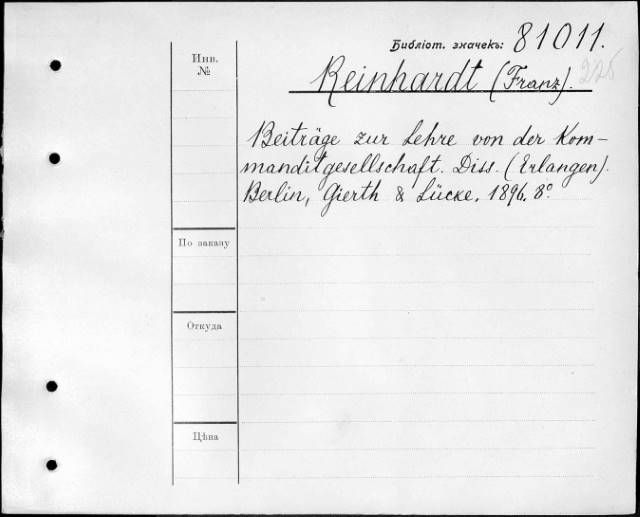 Библіот. значекъ: 81011.
Инв.
№
Reinhardt (Franz). 225
Beiträge zur Lehre von der Kom-
manditgesellschaft. Diss. (Erlangen).
Berlin, Gierth & Lücke. 1896. 8°.
По заказу
Откуда
Цѣна